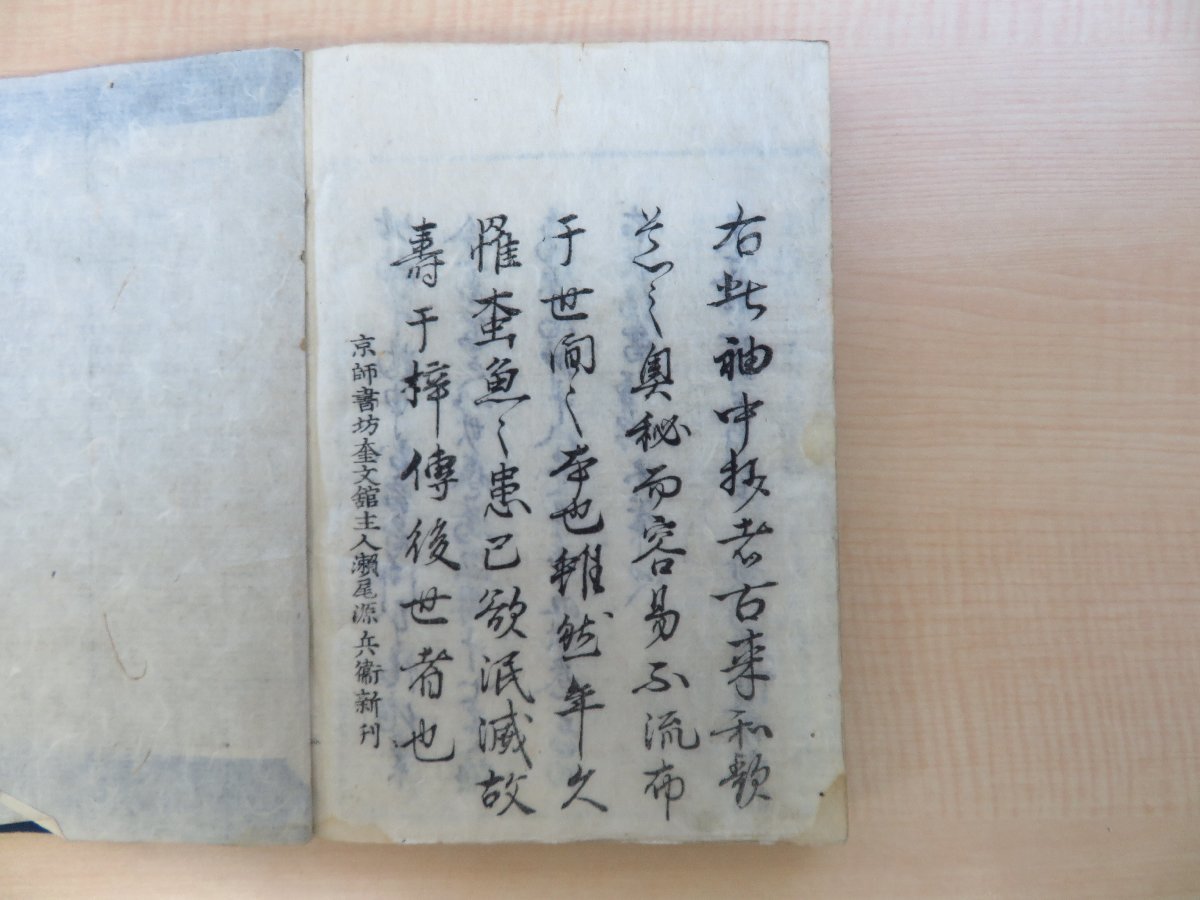 右此袖中抄者古来和歌
道之奥秘而容易不流布
于世間之本也雖然年久
罹蚕魚之患已欲泯滅故
壽于梓傳後世者也
京師書坊奎文舘主人瀬尾源兵衞新刊